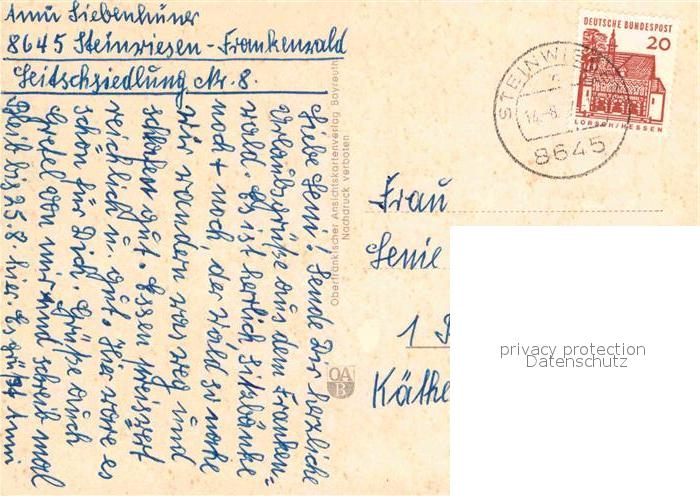 Anni Siebenhüner
8645 Steinwiesen - Frankenwald
Leitschsiedlung Nr. 8.
Liebe Leni! Sende Dir herzliche
Urlaubsgrüße aus dem Franken-
wald. Es ist herlich sitzbänke
noch + noch, der Wald so nahe
wir wandern was weg und
schlafen gut. Essen preiswert
reichlich u. gut. Hier wäre es
schön für Dich. Grüße auch
Gretel von mir und schreib mal
Bleib bis 25.8 hier. Es grüßt Anni
Oberfränkischer Ansichtskartenverlag Bayreuth
Nachdruck verboten
OA
B
DEUTSCHE BUNDESPOST
20
LORSCH/HESSEN
STEINWIES
8645
Frau
Lenie
1
Käthe
privacy protection
Datenschutz